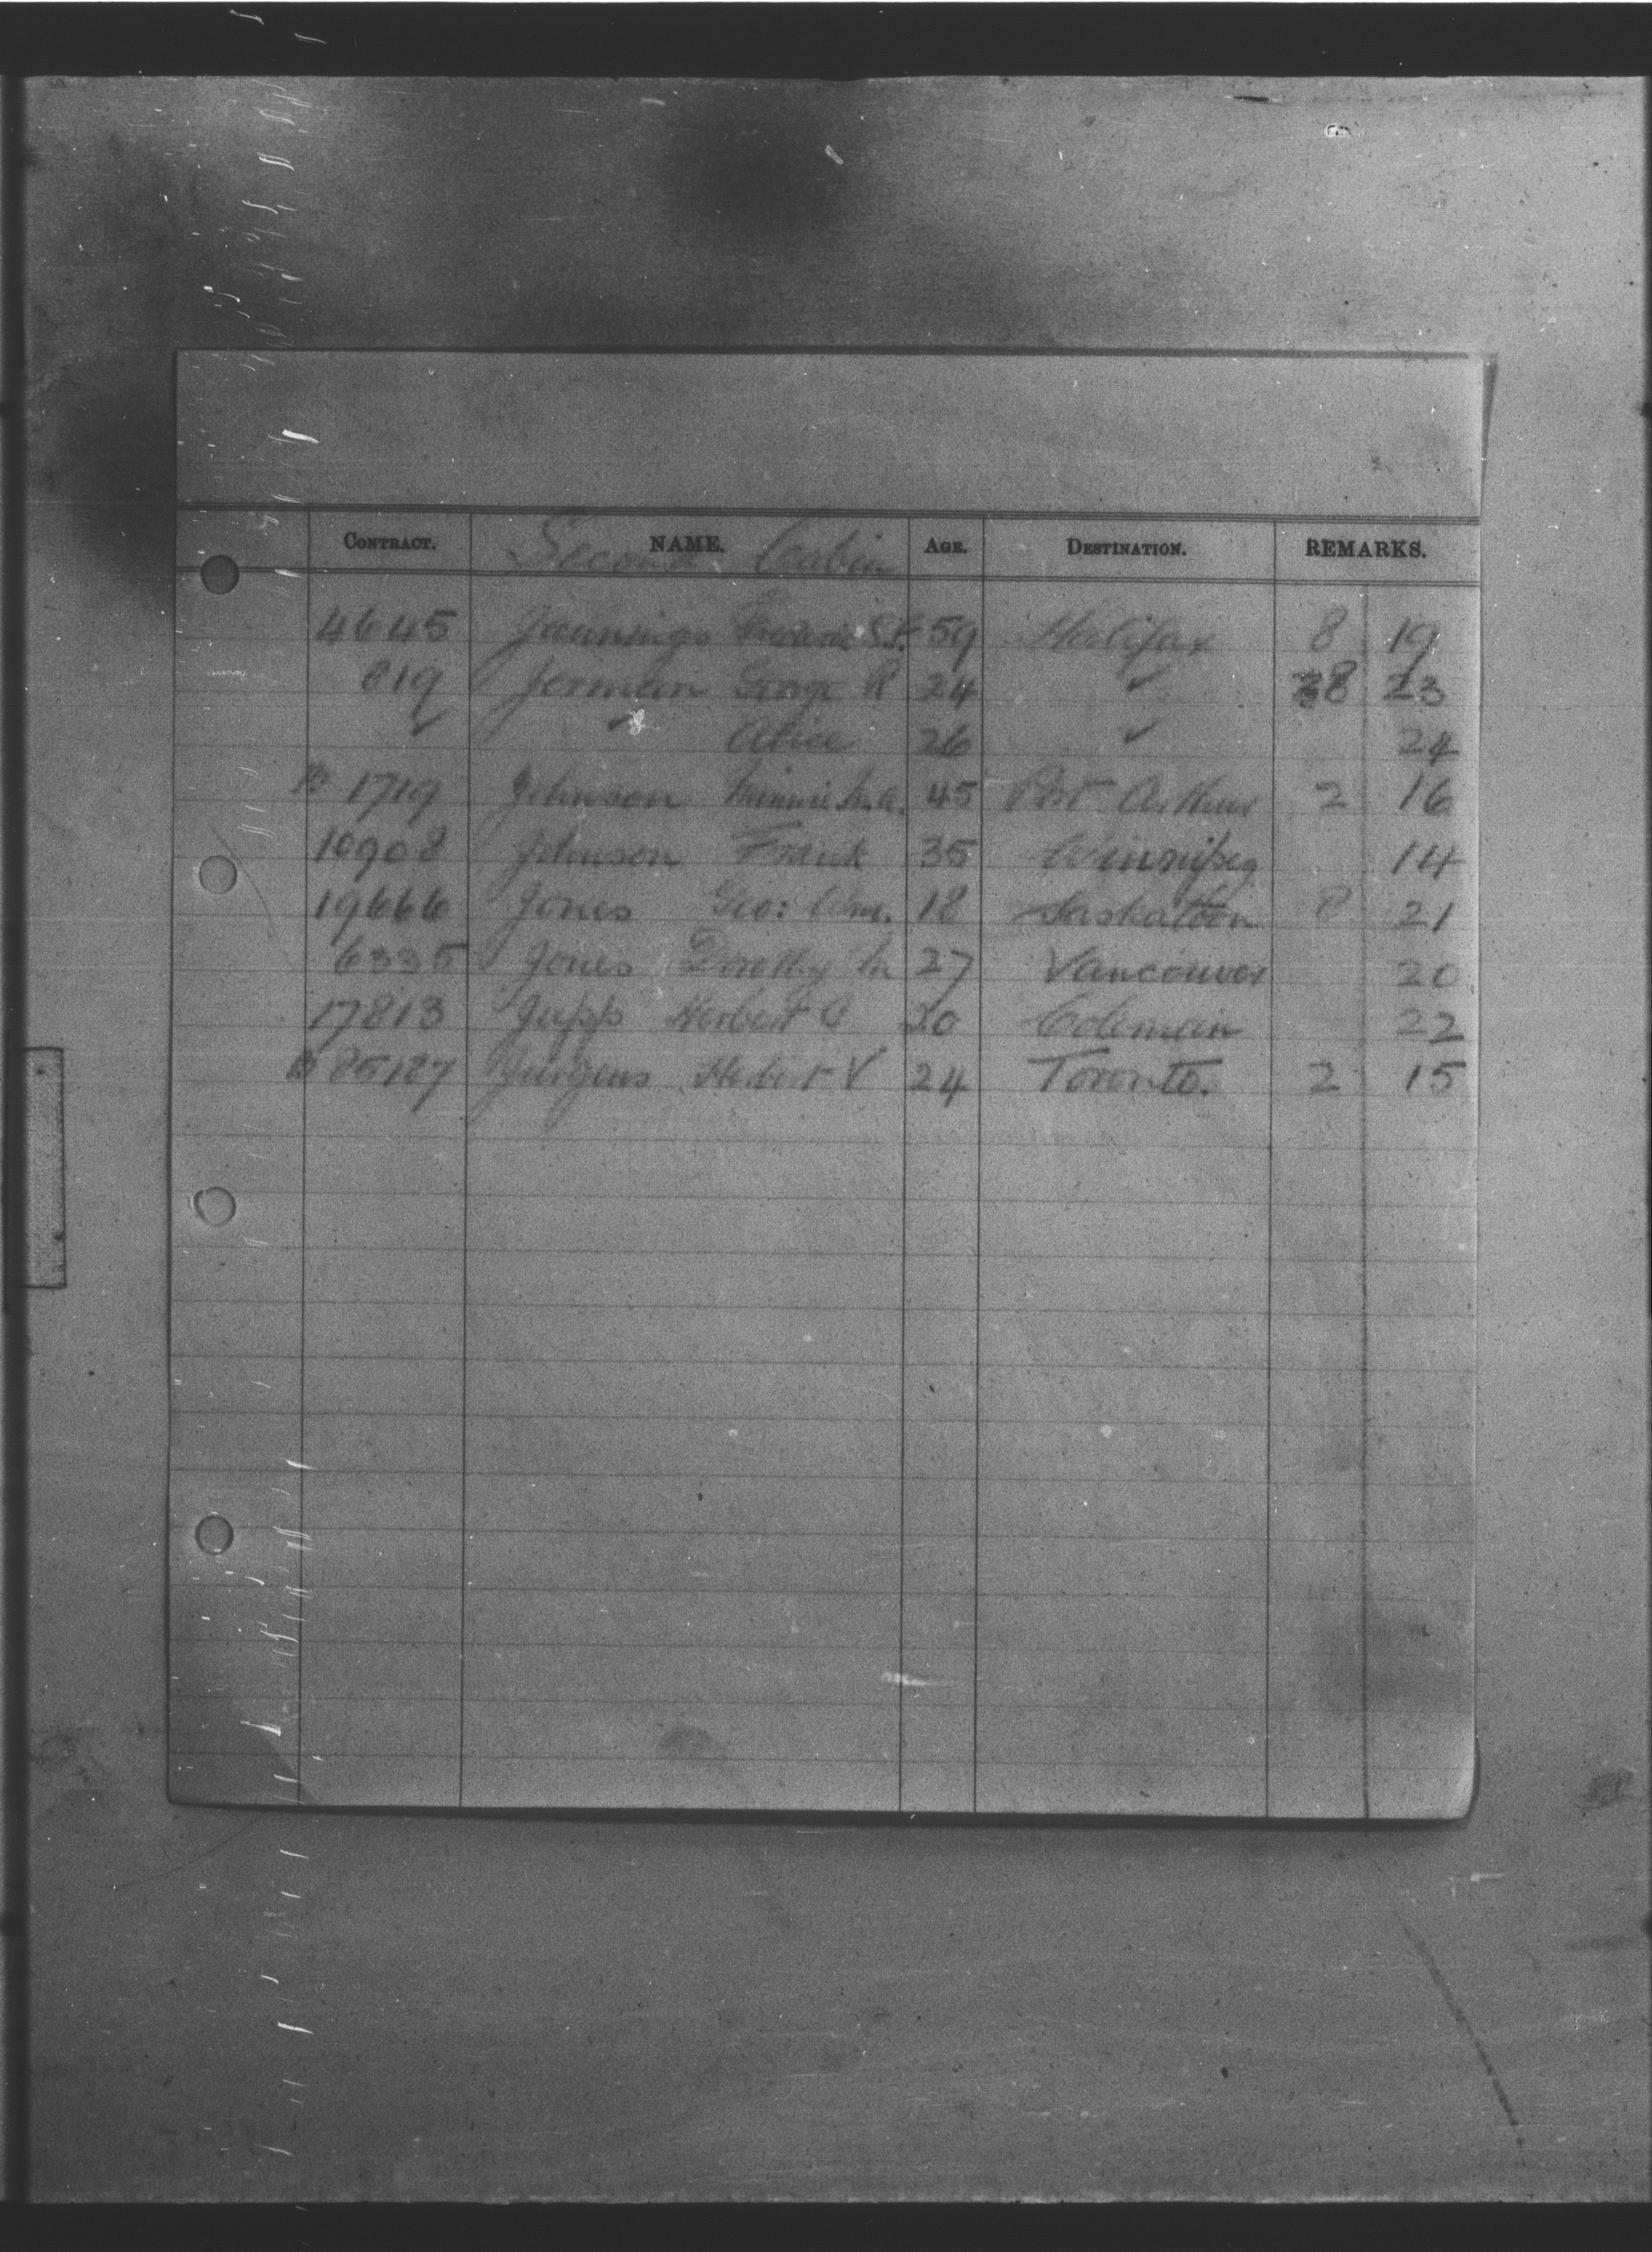 CONTRACT. NAME. AGE. DESTINATION. REMARKS.
Second Cabin
4645 Jennings 59 Halifax 8 19
819 Jerman George R 24 ✓ 8 23
✓ ✓ Alice 26 ✓ 24
1719 Johnson Minnie M.A. 45 Port Arthur 2 16
10908 Johnson Frank 35 Winnipeg 14
19666 Jones Geo: Wm. 18 Saskatoon 8 21
6335 Jones Dorothy M 27 Vancouver 20
17813 Jupp Herbert A 20 Coleman 22
85127 Jurgens Herbert V 24 Toronto. 2 15